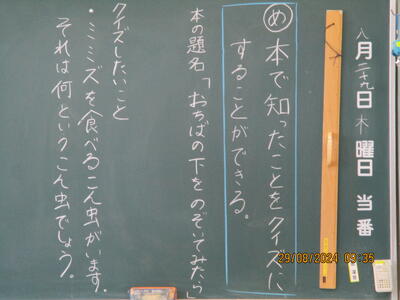 八月二十九日木曜日 当番
め 本で知ったことをクイズに
することができる。
本の題名「おちばの下をのぞいてみたら」
クイズしたいこと
・ミミズを食べるこん虫がいます。
それは何というこん虫でしょう。
29/08/2024 09:35